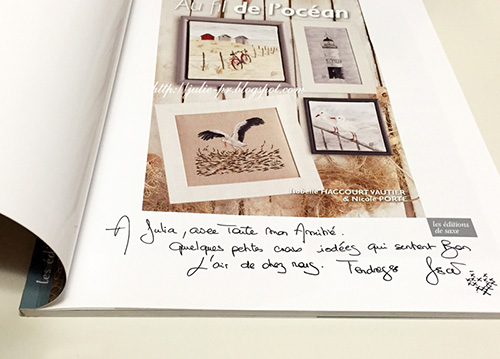 Au fil de l'océan
http://julie-fr.blogspot.com
Isabelle HACCOURT VAUTIER
& Nicole PORTE
les éditions
de saxe
les édi
A Julia, avec Toute mon Amitié.
Quelques petites croix iodées qui sentent Bon
L'air de chez nous. Tendresses Isa